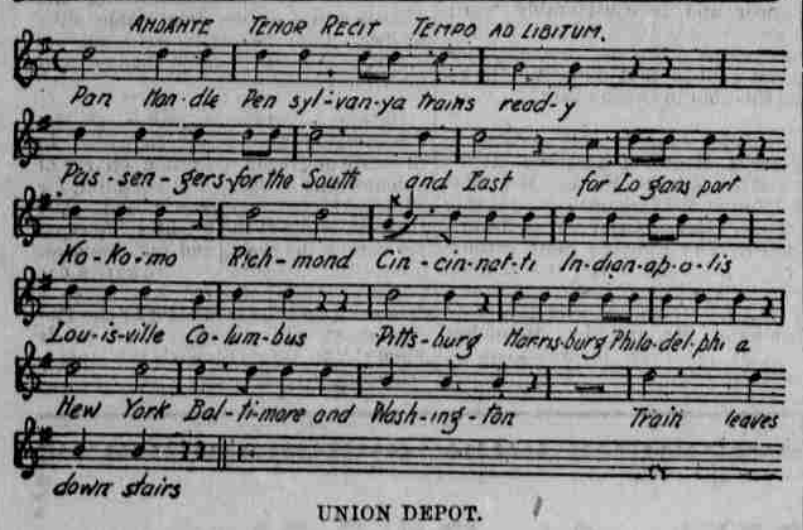 ANDANTE TENOR RECIT TEMPO AD LIBITUM.
Pan Han-dle Pen syl-van-ya trains read-y
Pas-sen-gers for the South and East for Lo gans port
Ko-Ko-mo Rich-mond Cin-cin-nat-ti In-dian-ap-o-lis
Lou-is-ville Co-lum-bus Pitts-burg Harris-burg Phila-del-phi a
New York Bal-ti-more and Wash-ing-ton Train leaves
down stairs
UNION DEPOT.